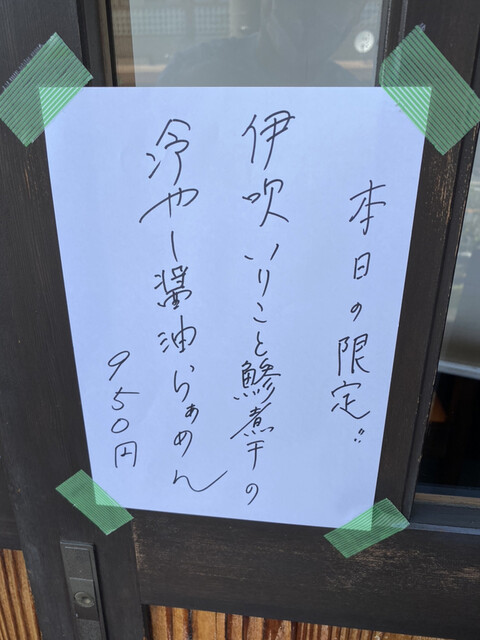 本日の限定!!
伊吹いりこと鯵煮干の
冷やし醤油らぁめん
950円